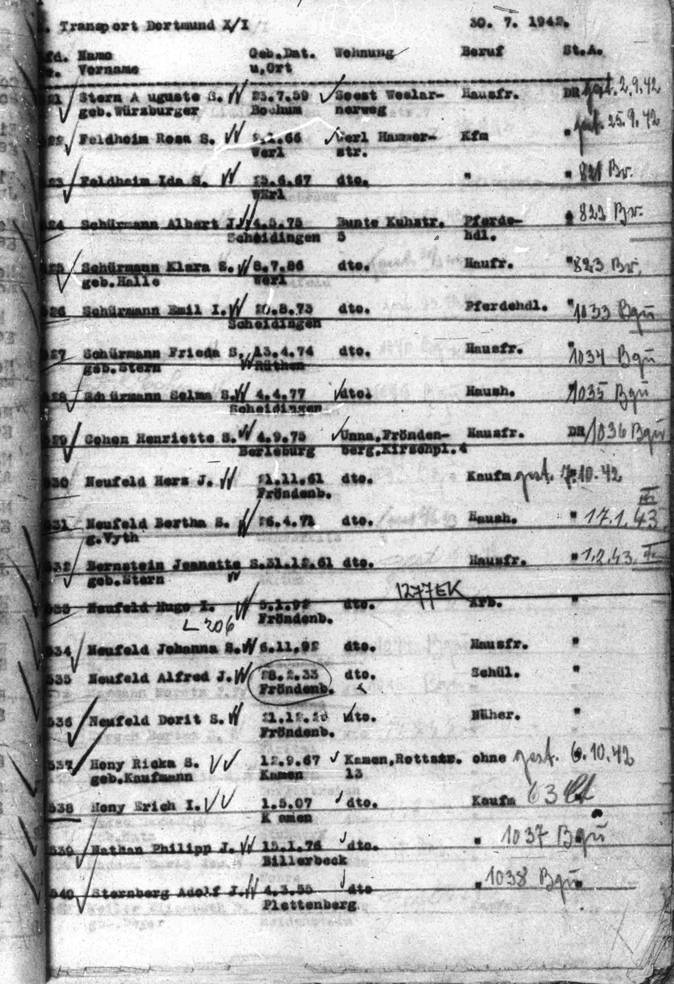 Transport Dortmund X/I 30. 7. 1942.
Name Geb.Dat. Wohnung Beruf St.A.
Vorname u.Ort
21 Stern A uguste S. 23.7.59 Soest Weslar- Hausfr. DR gest. 2.9.42
geb.Würzburger Bochum nerweg
22 Feldheim Rosa S. .1.66 Werl Hammer- Kfm " gest. 25.9.42
Werl str.
23 Feldheim Ida S. 25.6.67 dto. " " 821 Bv.
Werl
24 Schürmann Albert J. 4.5.75 Bunte Kuhstr. Pferde- 822 Bv.
Scheidingen 5 hdl.
25 Schürmann Klara S. 8.7.86 dto. Haufr. " 823 Bv.
geb.Halle Werl
26 Schürmann Emil I. 20.8.73 dto. Pferdehdl. " 1033 Bqu
Scheidingen
27 Schürmann Frieda S. 13.4.74 dto. Hausfr. " 1034 Bqu
geb.Stern Rüthen
28 Schürmann Selma S. 4.4.77 dto. Haush. " 1035 Bqu
Scheidingen
529 Cohen Henriette S. 4.9.75 Unna,Frönden- Hausfr. DR 1036 Bqu
Berleburg berg,Kirschpl.4
530 Neufeld Herz J. 21.11.61 dto. Kaufm gest. 7.10.42
Fröndenb.
531 Neufeld Bertha S. 26.4.71 dto. Haush. " 17.1.43.
g.Vyth
532 Bernstein Jeanette S. 31.12.61 dto. Hausfr. " 1.2.43
geb.Stern
1277 EK
533 Neufeld Hugo I. 5.1.92 dto. Arb. "
L 206 Fröndenb.
534 Neufeld Johanna S. 6.11.92 dto. Hausfr. "
535 Neufeld Alfred J. 28.2.33 dto. Schül. "
Fröndenb.
536 Neufeld Dorit S. 21.12. dto. Näher. "
Fröndenb.
537 Hony Ricka S. 12.9.67 Kamen,Rottstr. ohne gest. 6.10.42
geb.Kaufmann Kamen 13
538 Hony Erich I. 1.5.07 dto. Kaufm 63
K amen
539 Nathan Philipp J. 15.1.76 dto. " 1037 Bqu
Billerbeck
540 Sternberg Adolf J. 4.3.55 dto " 1038 Bqu
Plettenberg